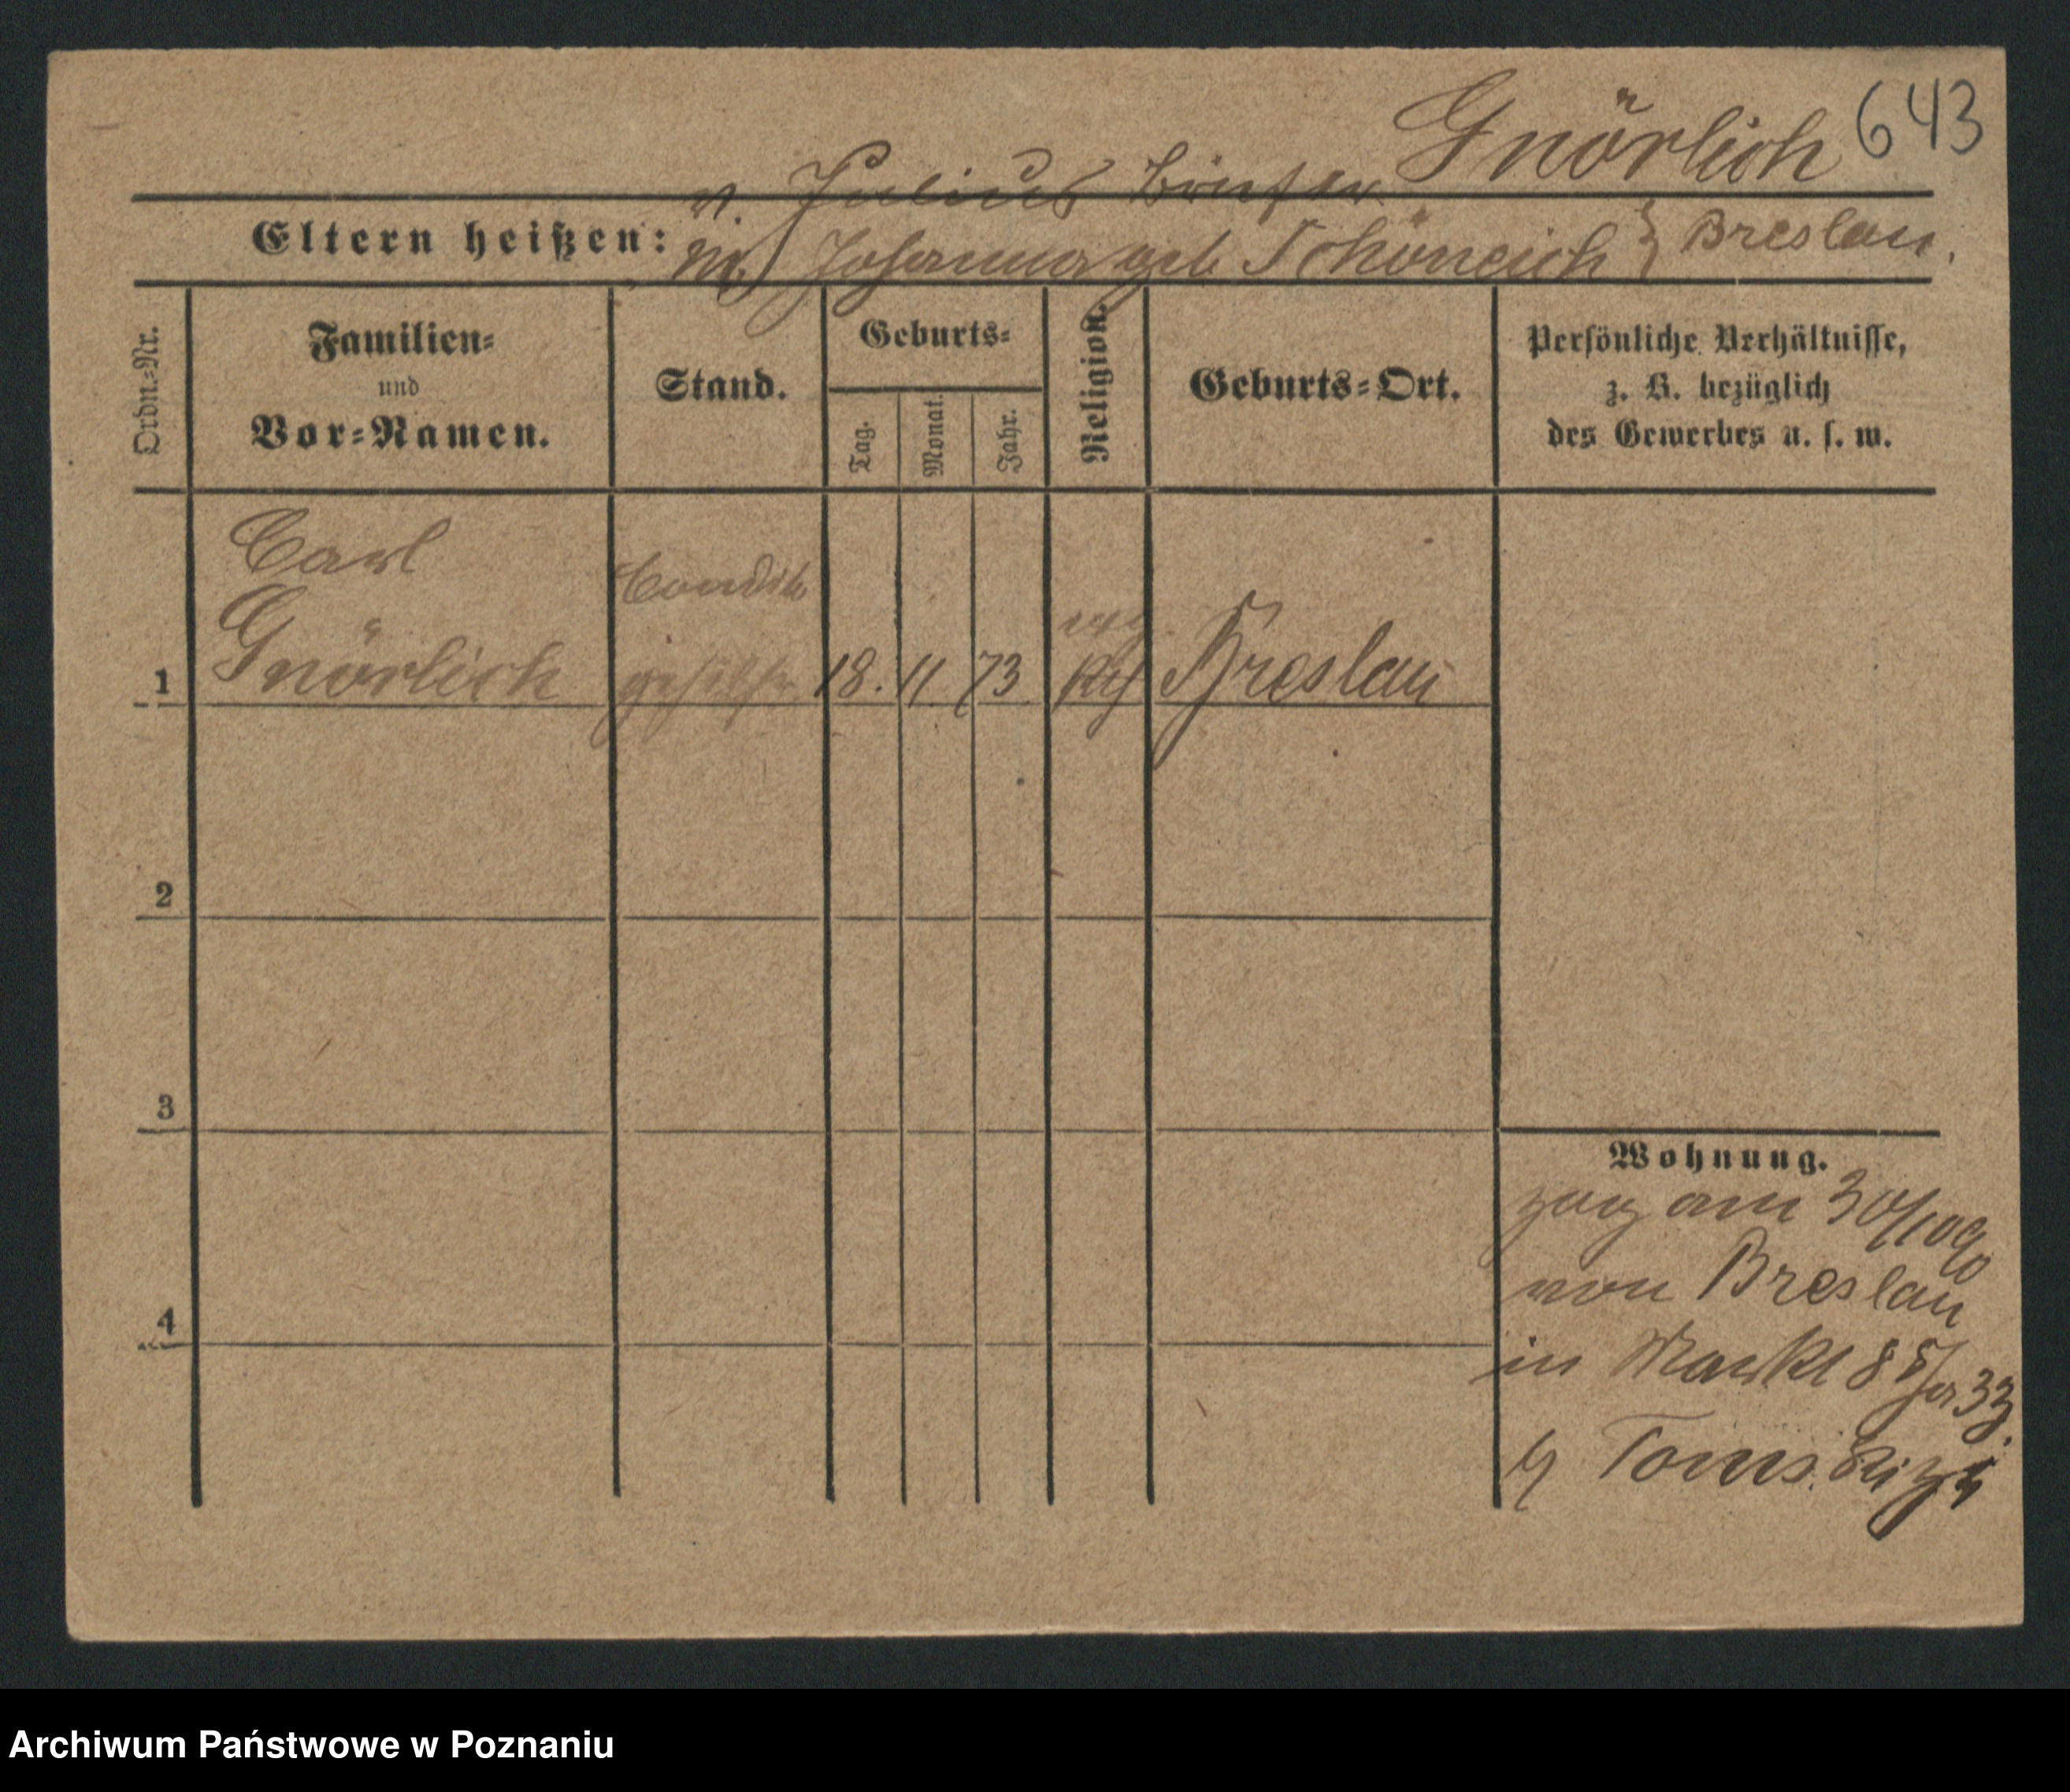 643
Gnörlich
v. Julius
Eltern heißen: m. Johanna geb Schöneich } Breslau.
Ordn.-Nr.
Familien-
und
Vor-Namen.
Stand.
Geburts-
Tag.
Monat.
Jahr.
Religion.
Geburts-Ort.
Persönliche Verhältnisse,
z. B. bezüglich
des Gewerbes u. s. w.
Carl
Gnörlich
Condit
gehilfe
1 18. 11 73 Breslau
2
3
4
Wohnung.
zog am 30/10 90
von Breslau
in Markt 8
Archiwum Państwowe w Poznaniu